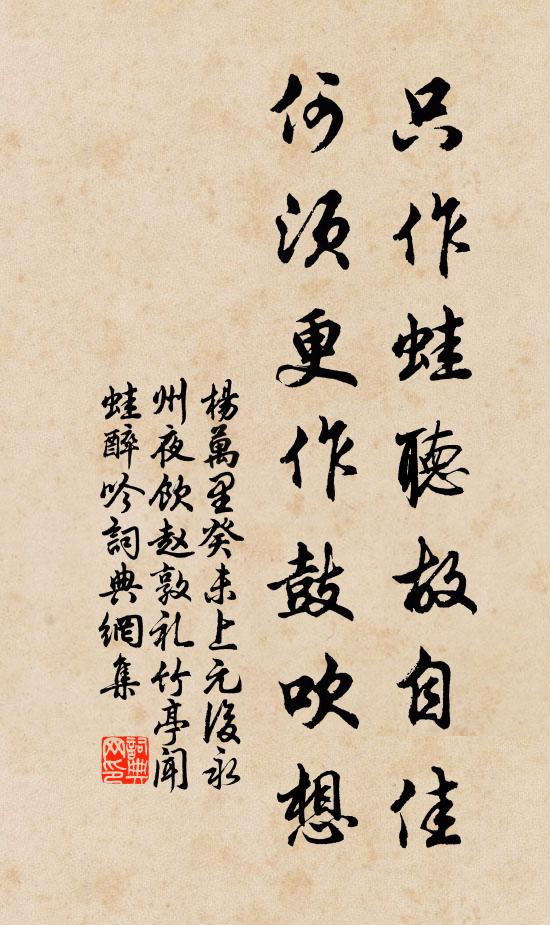 只作蛙聽故自佳
何須更作鼓吹想
楊萬里癸未上元後永
州夜飲赵敦礼竹亭聞
蛙醉吟詞典網集
詞典网印